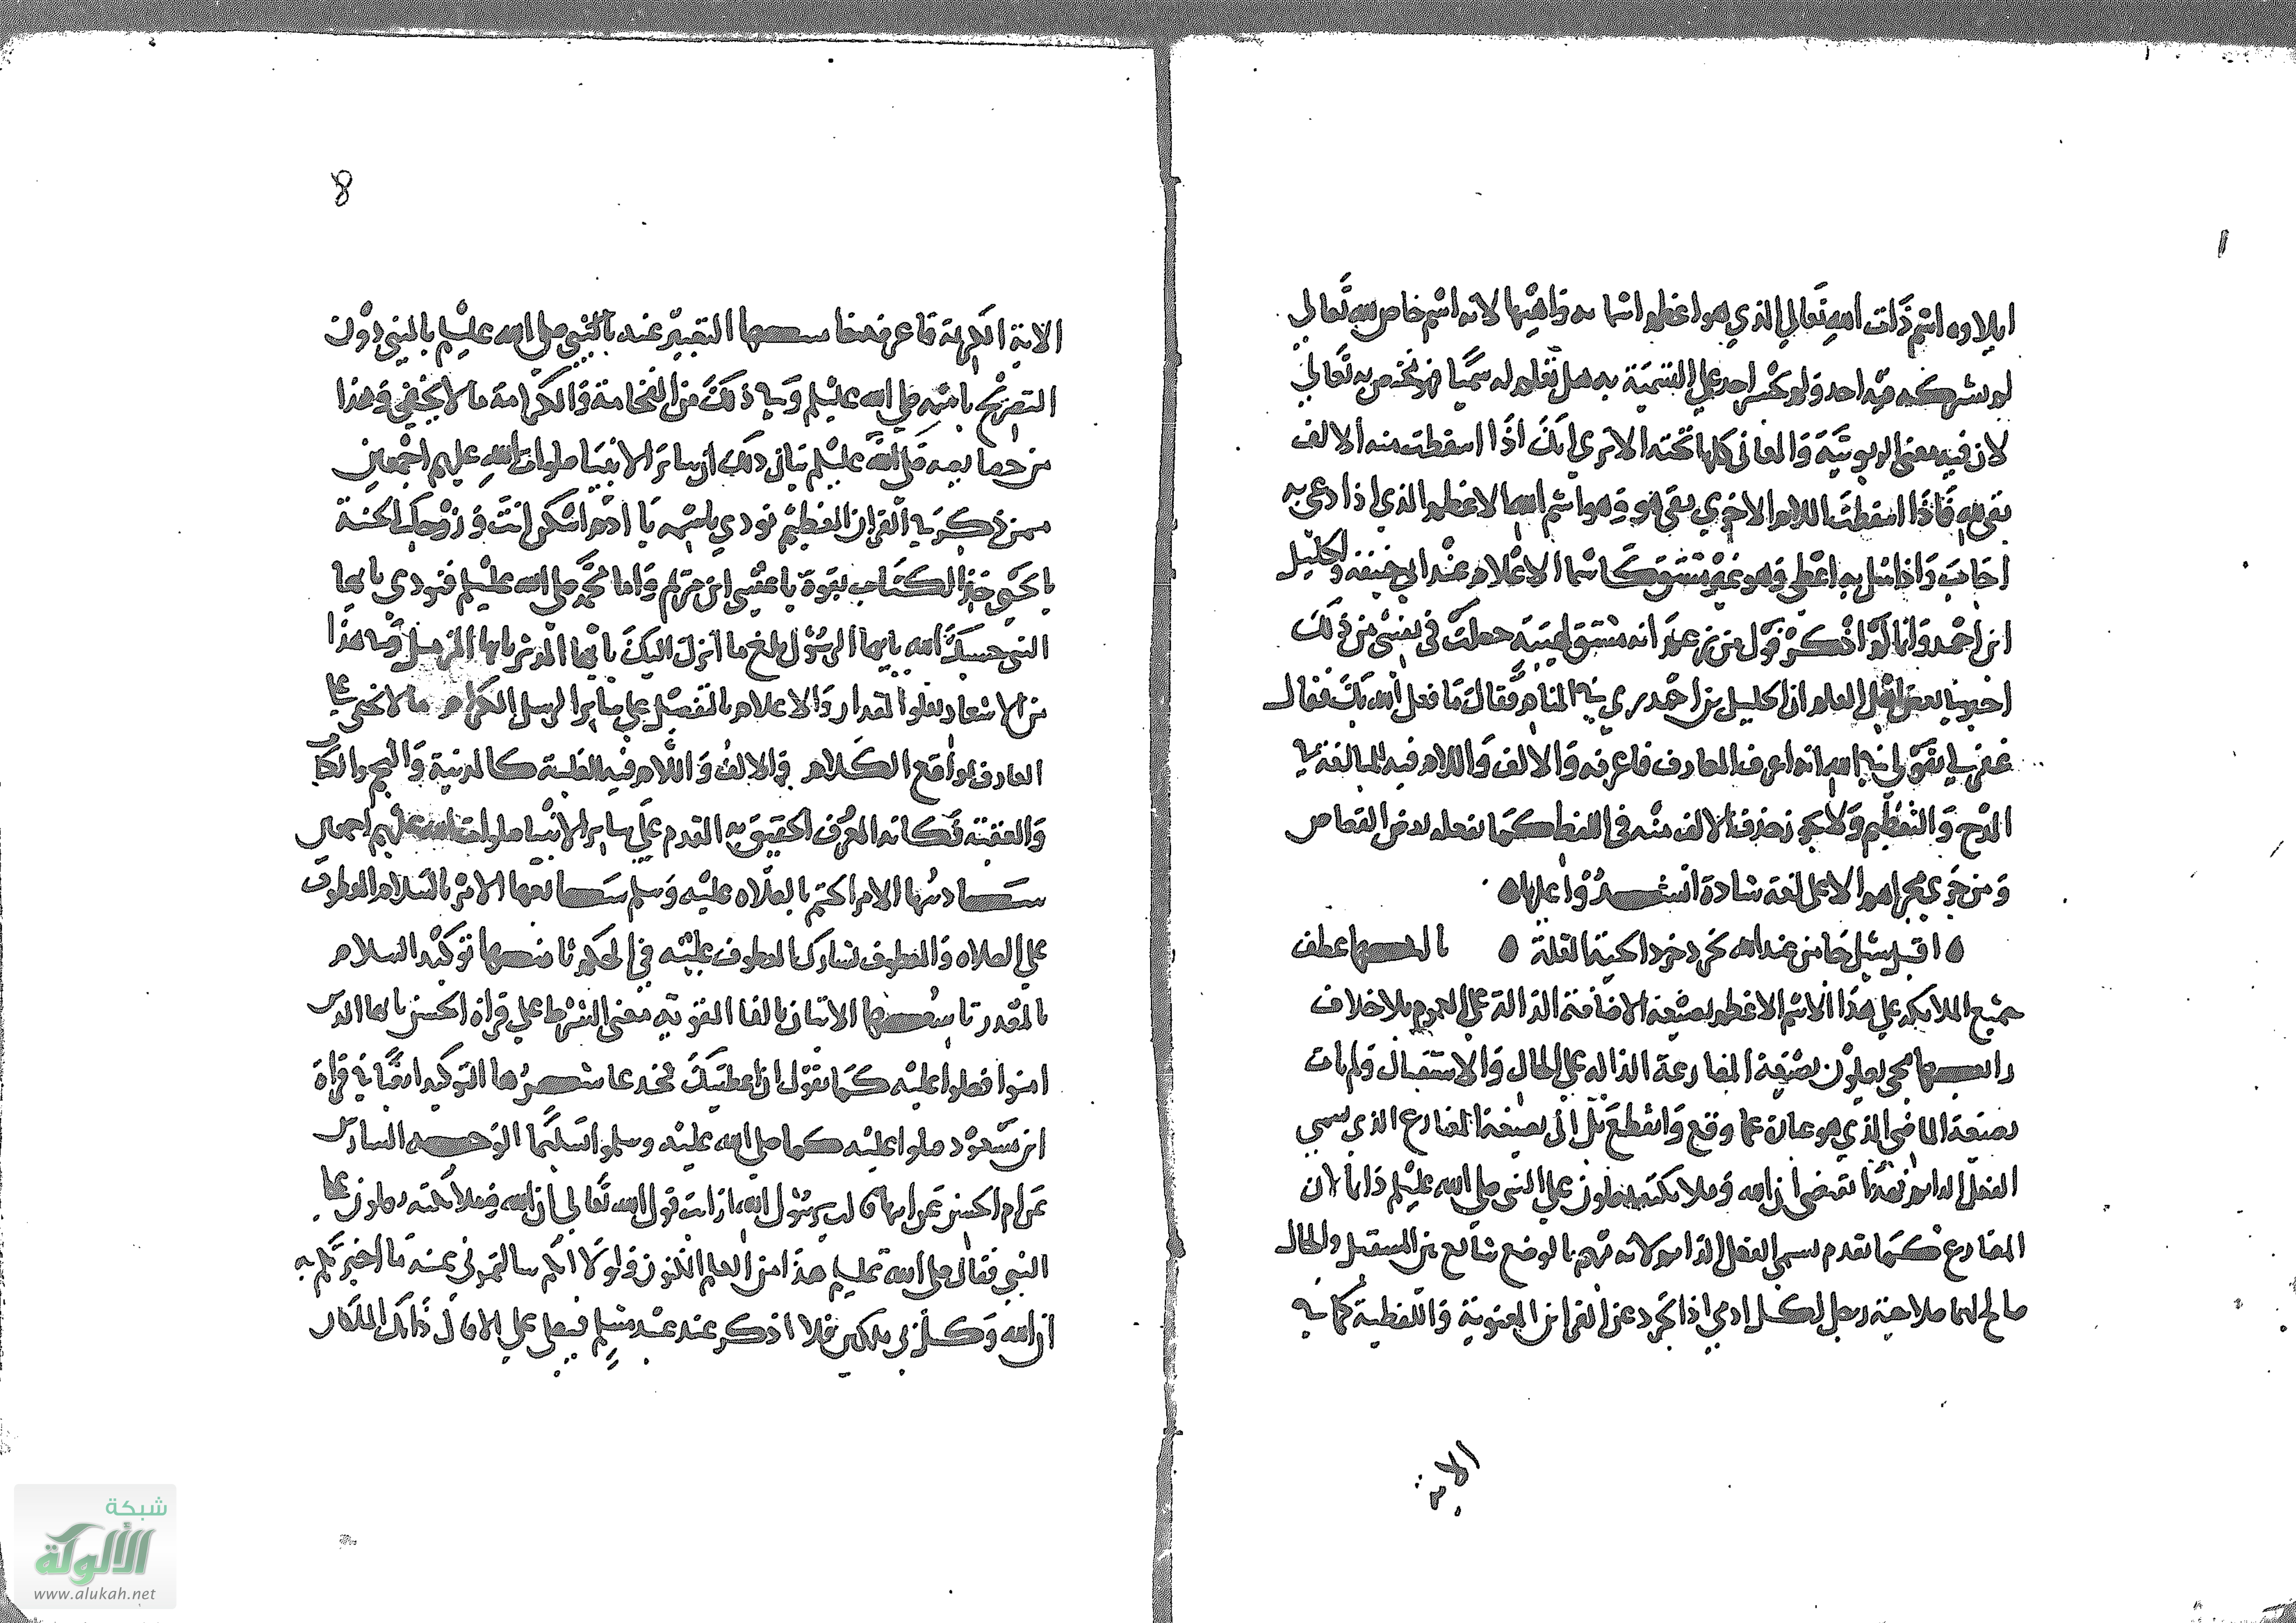 ايلاوه اسم ذات الله تعالى الذي هو اعظم اسمايه واهيبها لانه اسم خاص لله تعالى
لم يشركه فيه احد ولم يجسر احد على التسمية به هل تعلم له سميا فهو مختص به تعالى
لان فيه معنى الربوبية والمعاني كلها تحته الا ترى انك اذا اسقطت منه الالف
بقي لله فاذا اسقطت اللام الاخرى بقي هو وهو اسم الله الاعظم الذي اذا دعي به
اجاب واذا سئل به اعطى وهو غير مشتق كاسما الاعلام عند ابي حنيفة والخليل
ابن احمد وانما لم اذكر قول من زعم انه مشتق لهيبة حصلت في نفسي من ذلك
اخبرنا بعض اهل العلم ان الخليل بن احمد ري في المنام فقال ما فعل الله بك فقال
غفر لي بقولي في اسم الله انه اعرف المعارف فاعرفه والالف واللام فيه للمبالغة في
المدح والتعظيم ولا يجوز حذف الالف منه في اللفظ كما يفعله بعض القصاص
ومن جرى مجراهم الا على لغة شاذة انشدوا عليها
ه اقبل سيل جا من عند الله يحرد حرد الجنة المغلة ه ثالثها عطف
جميع الملايكة على هذا الاسم الاعظم بصيغة الاضافة الدالة على العموم بلا خلاف
رابعها مجي يصلون بصيغة المضارعة الدالة على الحال والاستقبال ولم يات
بصيغة الماضي الذي هو عبارة عما وقع وانقطع بل اتى بصيغة المضارع الذي يسمى
الفعل الدايم فهذا يقتضي ان الله وملايكته يصلون على النبي صلى الله عليه وسلم دايما لان
المضارع كما تقدم يسمى الفعل الدايم لانه مبهم بالوضع شايع بين المستقبل والحال
صالح لهما صلاحية رجل لكل ادمي اذا تجرد عن القراين المعنوية واللفظية كما في
الاية
8
الاية الكريمة فاعرفه خامسها التعبير عنه بالنبي صلى الله عليه وسلم بالنبي دون
التصريح باسمه صلى الله عليه وسلم وفي ذلك من الفخامة والكرامة ما لا يخفى وهذا
من خصايصه صلى الله عليه وسلم بيان ذلك ان ساير الانبيا صلوات الله عليهم اجمعين
ممن ذكر في القران العظيم نودي باسمه يا ادم اسكن انت وزوجك الجنة
يا يحيى خذ الكتاب بقوة يا عيسى ابن مريم واما محمد صلى الله عليه وسلم فنودي يا ايها
النبي حسبك الله يا ايها الرسول بلغ ما انزل اليك يا ايها المدثر يا ايها المزمل وفي هذا
من الاشعار بعلو المقدار والاعلام بالتفضيل على ساير الرسل الكرام ما لا يخفى على
العارف بمواقع الكلام والالف واللام فيه للغلبة كالمدينة والنجم والكتاب
والعقبة فكانه المعرف الحقيق به التقدم على ساير الانبيا صلوات الله عليهم اجمعين
سادسها الامر الحتم بالصلاه عليه وسلم سابعها الامر بالسلام المعطوف
على الصلاه والمعطوف يشارك المعطوف عليه في الحكم ثامنها توكيد السلام
بالمصدر تاسعها الاتيان بالفا المقوية معنى الشرط على قراة الحسن يا ايها الذين
امنوا فصلوا عليه كما تقول ان اعطيتك فخذ عاشرها التوكيد ايضا في قراة
ابن مسعود صلوا عليه كما صلى الله عليه وسلموا تسليما الوجه السادس
عن ام الحسن عن ابيها قال يا رسول الله ارايت قول الله تعالى ان الله وملائكته يصلون على
النبي فقال صلى الله عليه وسلم هذا من العلم المكنون ولولا انكم سالتموني عنه ما اخبرتكم به
ان الله وكل بي ملكين فلا اذكر عند عبد مسلم فيصلي علي الا قال ذانك الملكان
شبكة
الألوكة
www.alukah.net